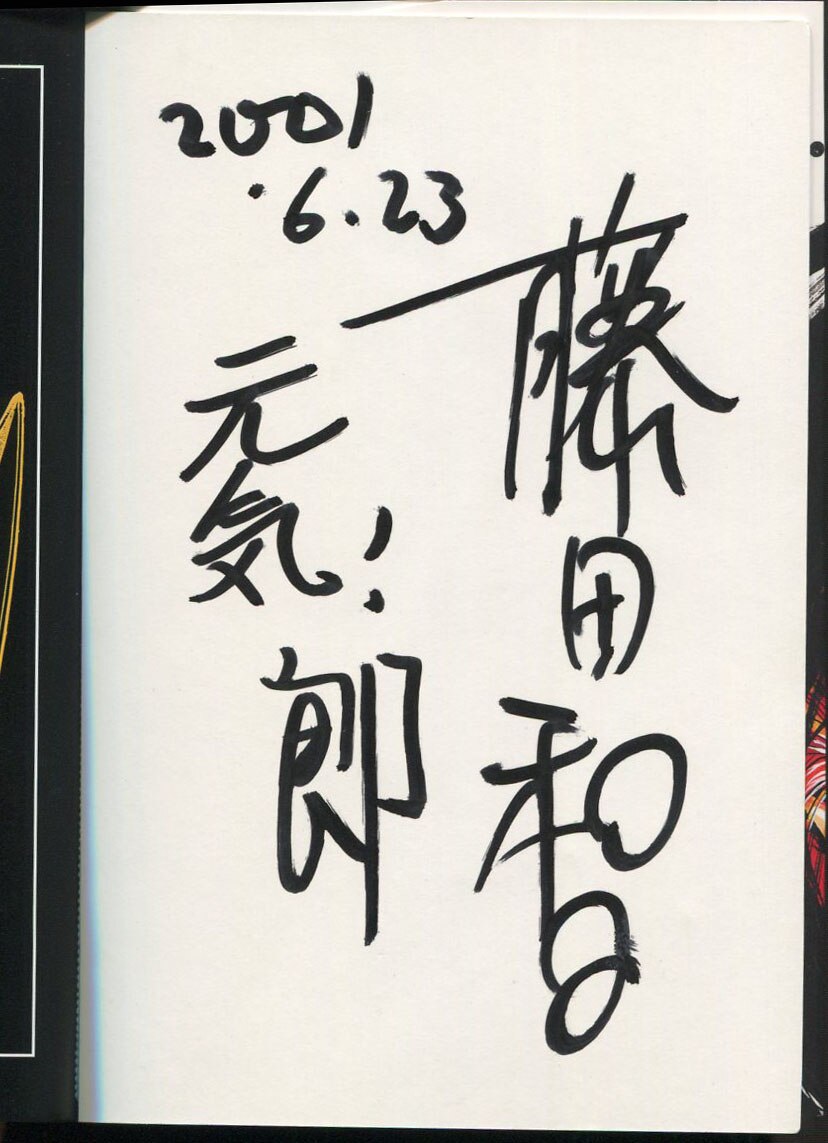 2001
.6.23
藤田和日郎
元気!